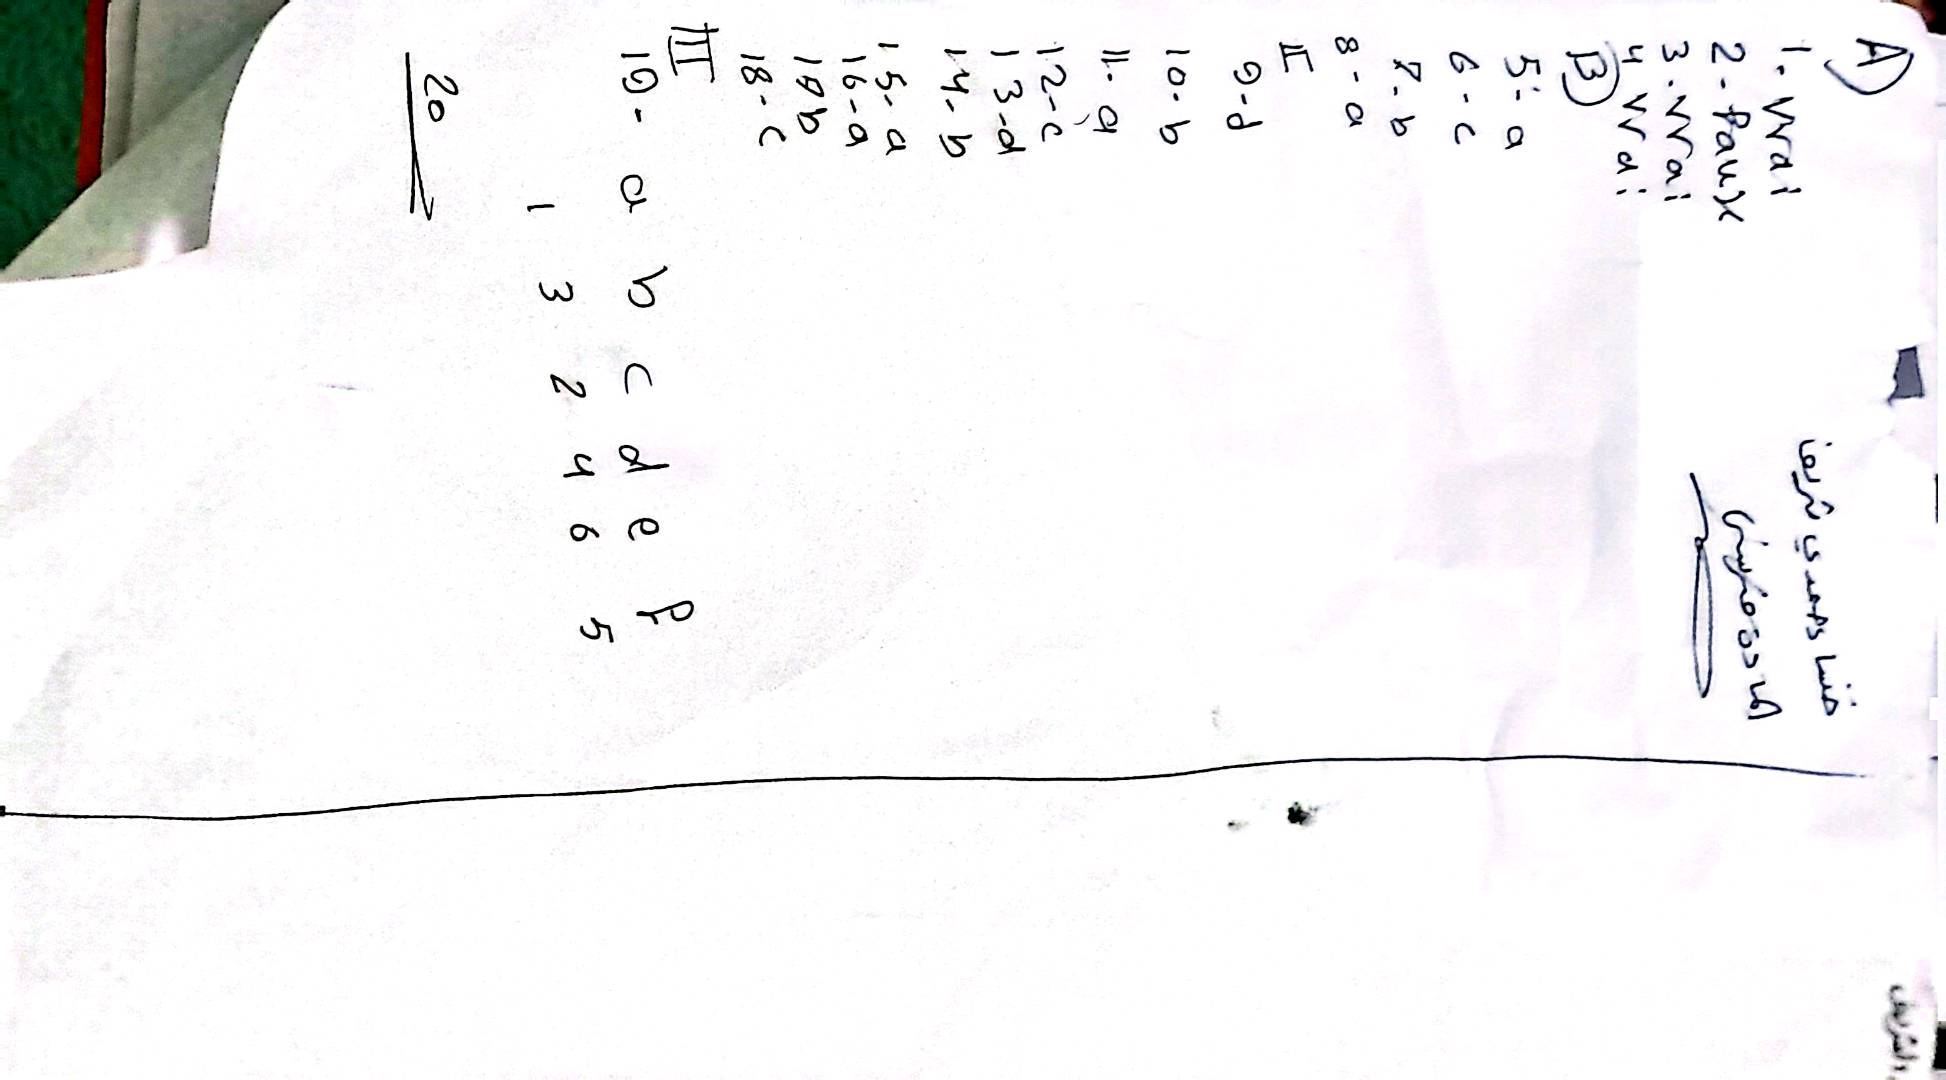 A)
1. Vrai
2 - faux
3. Vrai
4 Vrai
B)
5 - a
6 - c
7 - b
8 - a
II
9 - d
10 - b
11 - a
12 - c
13 - d
14 - b
15 - a
16 - a
17 b
18 - c
III
19 - a b c d e f
1 3 2 4 6 5
20
شريف